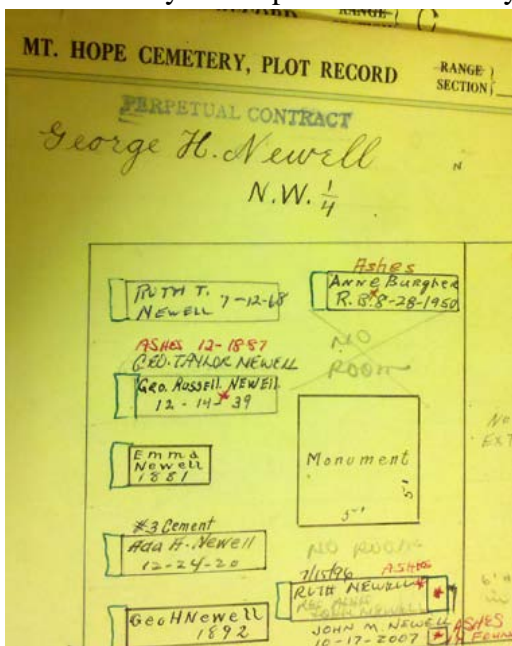 RANGE
MT. HOPE CEMETERY, PLOT RECORD
RANGE
SECTION
PERPETUAL CONTRACT
George H. Newell
N
N.W. 1/4
RUTH T.
NEWELL 7-12-68
Ashes
ANNE Burgher
R. B. 8-28-1950
ASHES 12-1887
GEO. TAYLOR NEWELL
NO
ROOM
GEO. RUSSELL NEWELL
12-14-39
Emma
Newell
1881
Monument
5'
5'
No
EXT
#3 Cement
Ada H. Newell
12-24-20
NO ROOM
7/15/96 ASHES
RUTH NEWELL
Geo H Newell
1892
JOHN M. NEWELL
10-17-2007
ASHES